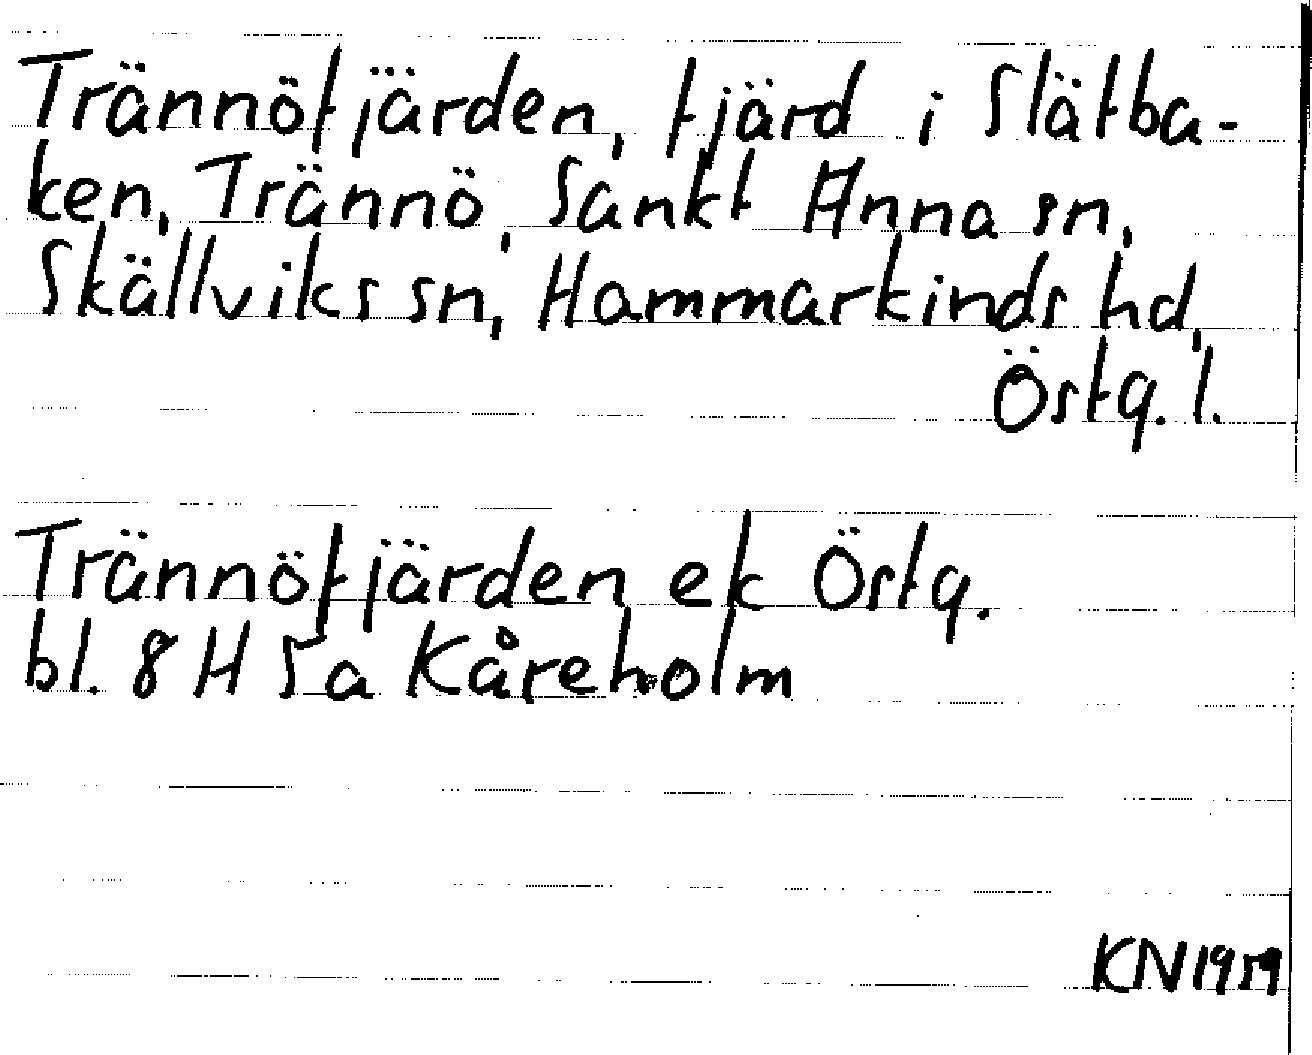 Trännöfjärden, fjärd i Slätba-
ken, Trännö, Sankt Anna sn,
Skällviks sn, Hammarkinds hd,
Östg. l.
Trännöfjärden ek Östg.
bl. 8 H 5a Kåreholm
KN 1959